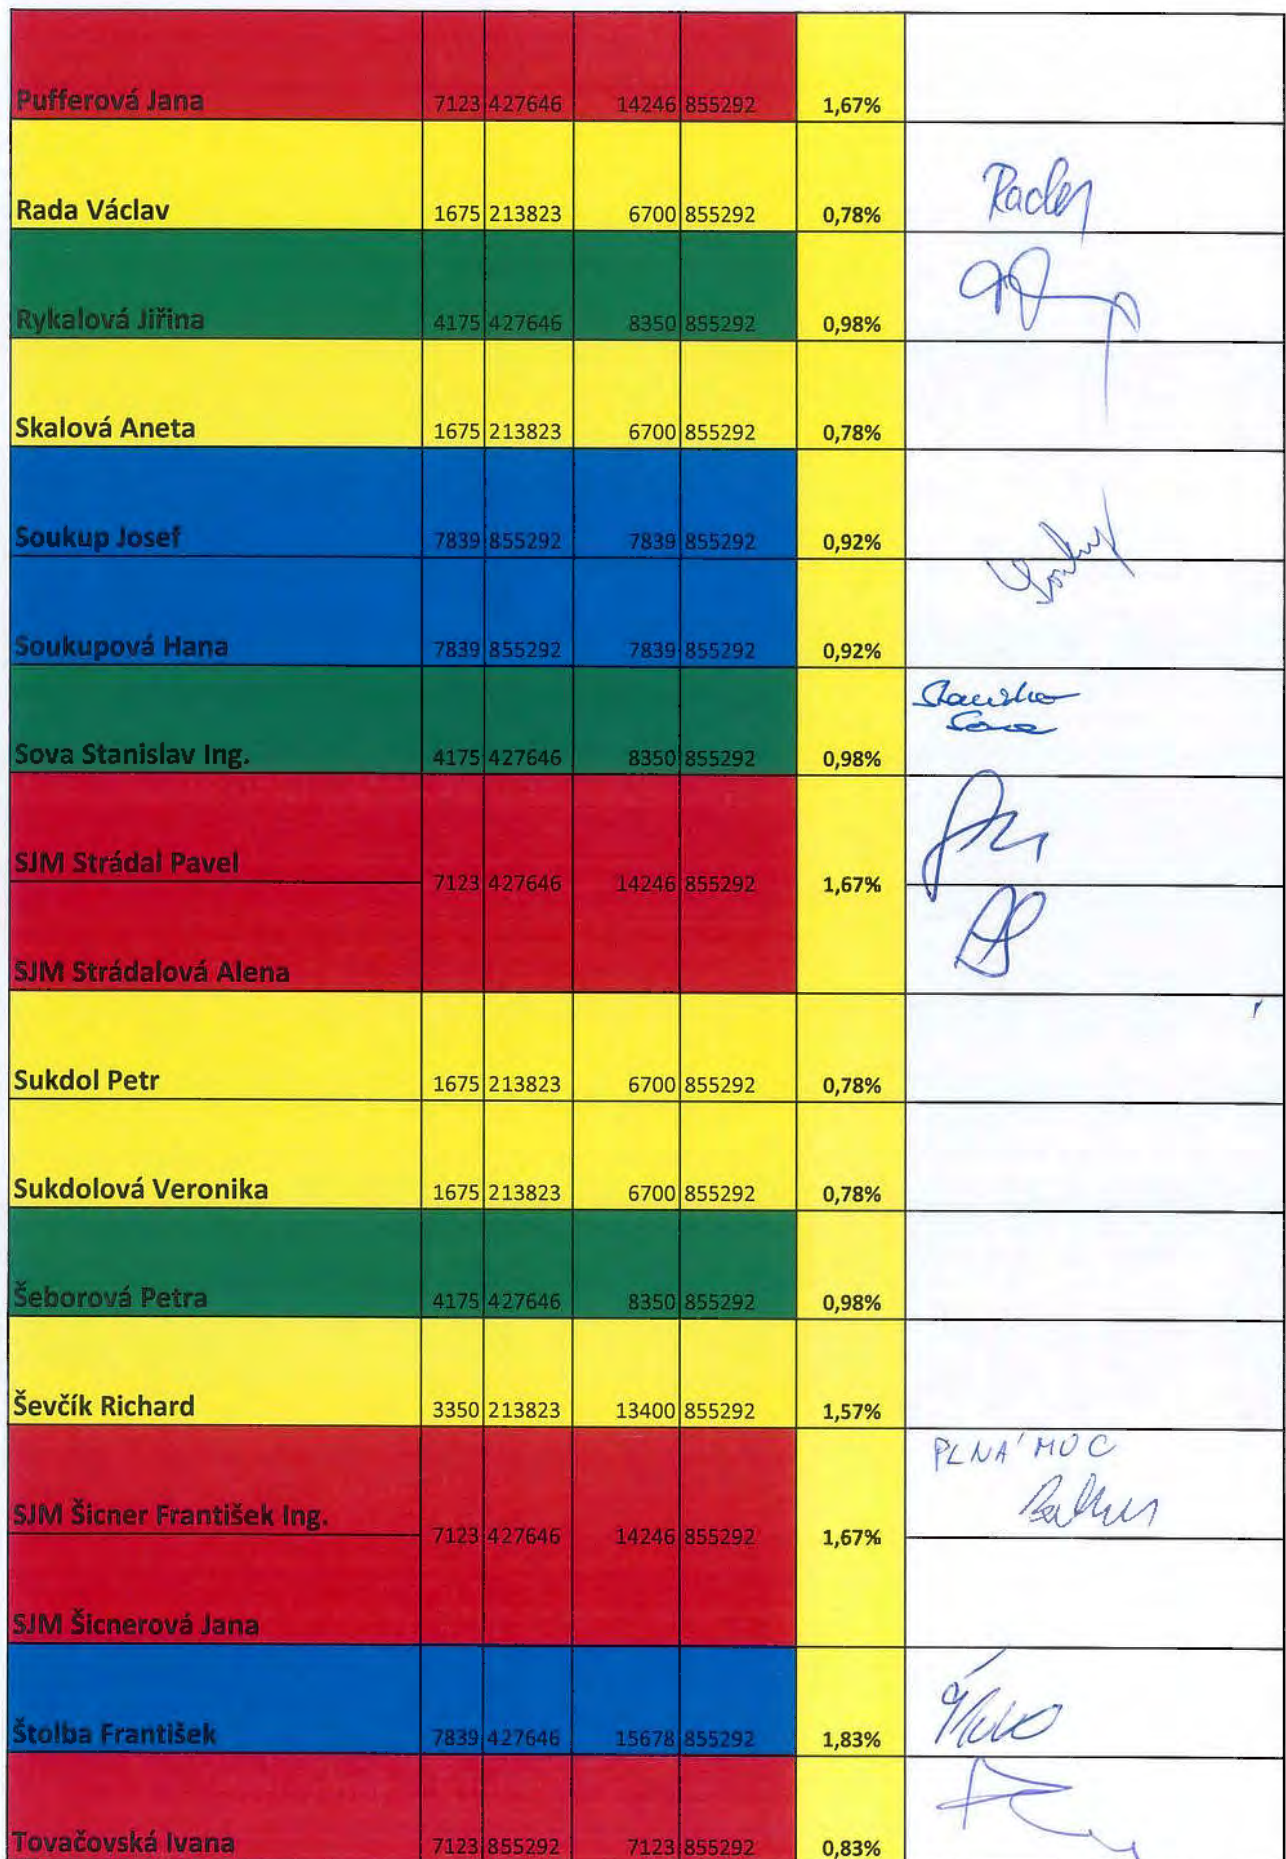 Pufferová Jana 7123 427646 14246 855292 1,67%
Rada Václav 1675 213823 6700 855292 0,78%
Rykalová Jiřina 4175 427646 8350 855292 0,98%
Skalová Aneta 1675 213823 6700 855292 0,78%
Soukup Josef 7839 855292 7839 855292 0,92%
Soukupová Hana 7839 855292 7839 855292 0,92%
Sova Stanislav Ing. 4175 427646 8350 855292 0,98%
SJM Strádal Pavel
7123 427646 14246 855292 1,67%
SJM Strádalová Alena
Sukdol Petr 1675 213823 6700 855292 0,78%
Sukdolová Veronika 1675 213823 6700 855292 0,78%
Šeborová Petra 4175 427646 8350 855292 0,98%
Ševčík Richard 3350 213823 13400 855292 1,57%
PLNÁ MOC
SJM Šicner František Ing.
7123 427646 14246 855292 1,67%
SJM Šicnerová Jana
Štolba František 7839 427646 15678 855292 1,83%
Tovačovská Ivana 7123 855292 7123 855292 0,83%